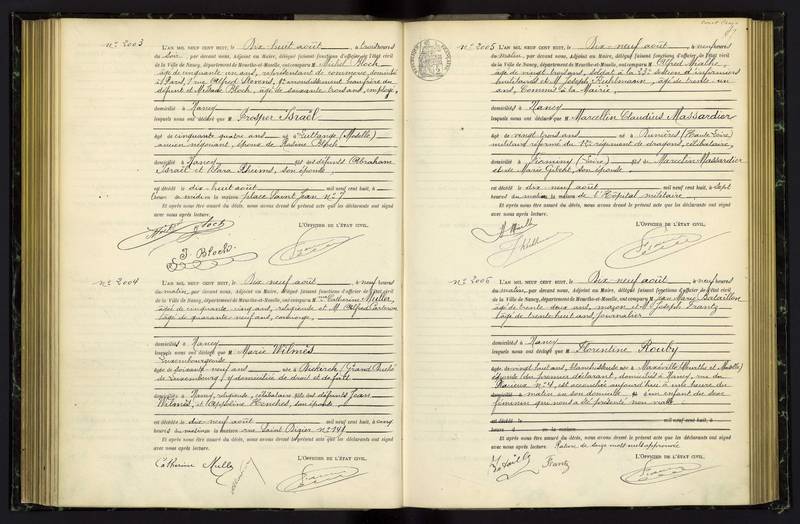 n° 2003
L'AN MIL NEUF CENT HUIT, le Dix-huit août, à trois heures
du soir, par devant nous, Adjoint au Maire, délégué faisant fonctions d'officier de l'état civil
de la Ville de Nancy, département de Meurthe-et-Moselle, ont comparu M. Michel Bloch,
âgé de cinquante un ans, représentant de commerce, domicilié
à Paris, rue Alfred Stevens, arrondissement beau-frère du
défunt et Bloch, âgé de soixante trois ans, employé,
domicilié à Nancy
lesquels nous ont déclaré que M. Prosper Israël
âgé de cinquante quatre ans né à Luttange (Moselle)
ancien négociant, époux de Bloch
domicilié à Nancy fils des défunts Abraham
Israël et Sara Rheims, son épouse
est décédé le dix-huit août mil neuf cent huit, à
heure de midi en la maison place Saint Jean n° 7
Et après nous être assuré du décès, nous avons dressé le présent acte que les déclarants ont signé
avec nous après lecture.
L'OFFICIER DE L'ÉTAT CIVIL,
Bloch
J. Bloch
n° 2004
L'AN MIL NEUF CENT HUIT, le Dix-neuf août, à neuf heures
du matin, par devant nous, Adjoint au Maire, délégué faisant fonctions d'officier de l'état civil
de la Ville de Nancy, département de Meurthe-et-Moselle, ont comparu Mme Catherine Muller,
âgée de cinquante cinq ans, religieuse et M. Alfred
âgé de quarante neuf ans, concierge,
domiciliés à Nancy
lesquels nous ont déclaré que M. Marie Wilmès
Luxembourgeoise
âgée de soixante neuf ans née à Diekirch (Grand Duché
de Luxembourg) y domiciliée de droit et de fait
domiciliée à Nancy, religieuse, célibataire fille des défunts Jean
Wilmès, et Joséphine Henches, son épouse
est décédée le dix-neuf août mil neuf cent huit, à cinq
heures du matin en la maison rue Saint Dizier n° 141
Et après nous être assuré du décès, nous avons dressé le présent acte que les déclarants ont signé
avec nous après lecture.
L'OFFICIER DE L'ÉTAT CIVIL,
Catherine Mulle
n° 2005
L'AN MIL NEUF CENT HUIT, le Dix-neuf août, à neuf heures
du matin, par devant nous, Adjoint au Maire, délégué faisant fonctions d'officier de l'état civil
de la Ville de Nancy, département de Meurthe-et-Moselle, ont comparu M. Alfred
âgé de vingt trois ans, soldat à la 23e section d'infirmiers
militaires et M. Joseph Kuhlmann, âgé de trente un
ans, Commis à la Mairie,
domicilié à Nancy
lesquels nous ont déclaré que M. Marcellin Claudius Massardier
âgé de vingt trois ans né à (Haute Loire)
militaire réformé du 12e régiment de dragons, célibataire,
domicilié à Firminy (Loire) fils de Marcellin Massardier
et de Marie son épouse
est décédé le dix-neuf août mil neuf cent huit, à sept
heures du matin en la maison de l'Hôpital militaire
Et après nous être assuré du décès, nous avons dressé le présent acte que les déclarants ont signé
avec nous après lecture.
L'OFFICIER DE L'ÉTAT CIVIL,
n° 2006
L'AN MIL NEUF CENT HUIT, le Dix-neuf août, à neuf heures
du matin, par devant nous, Adjoint au Maire, délégué faisant fonctions d'officier de l'état civil
de la Ville de Nancy, département de Meurthe-et-Moselle, ont comparu M. Jean Marie Bataillon
âgé de trente deux ans, maçon et M. Joseph Frantz
âgé de trente huit ans, journalier
domiciliés à Nancy
lesquels nous ont déclaré que M. Florentine Rouby
âgée de vingt huit ans, née à Maxéville (Meurthe et Moselle)
épouse du premier déclarant, domiciliés à Nancy, rue du
n° 4, est accouchée aujourd'hui à une heure du
matin en son domicile d'un enfant du sexe
féminin qui nous a été présenté non viable
est décédé le mil neuf cent huit, à
heures en la maison
Et après nous être assuré du décès, nous avons dressé le présent acte que les déclarants ont signé
avec nous après lecture. Rature de onze mots nuls approuvée
L'OFFICIER DE L'ÉTAT CIVIL,
Frantz